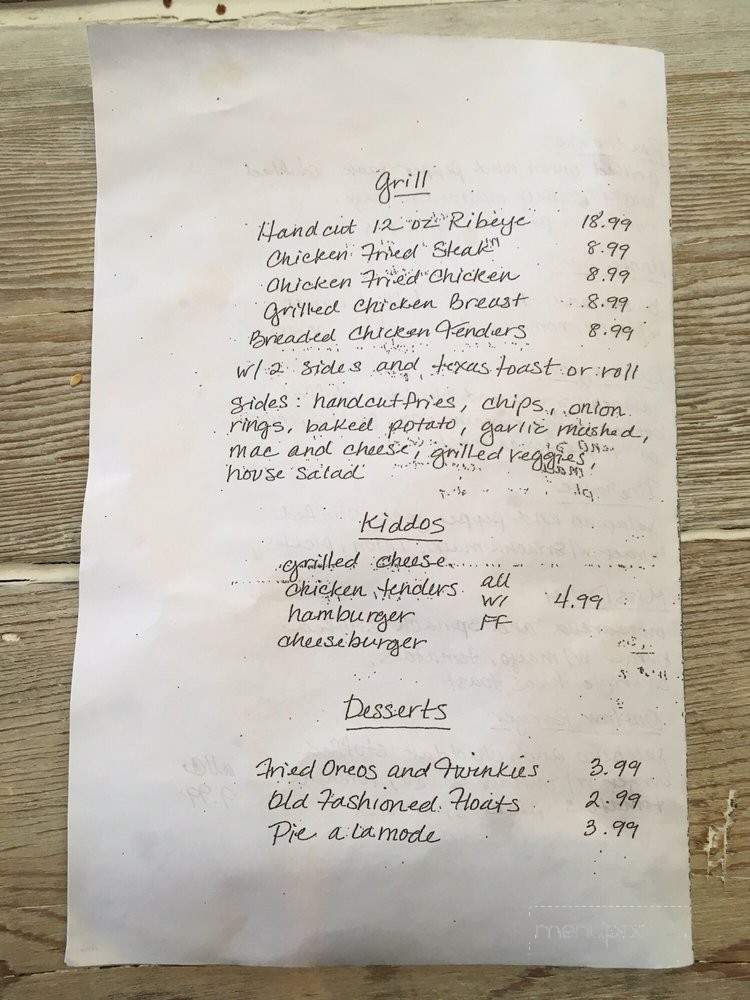 Grill
Handcut 12 oz Ribeye 18.99
Chicken Fried Steak 8.99
Chicken Fried Chicken 8.99
Grilled Chicken Breast 8.99
Breaded Chicken Tenders 8.99
w/ 2 sides and texas toast or roll
sides: handcut fries, chips, onion
rings, baked potato, garlic mashed,
mac and cheese, grilled veggies,
house salad
Kiddos
grilled cheese
chicken tenders all
w/ 4.99
hamburger FF
cheeseburger
Desserts
Fried Oreos and Twinkies 3.99
Old Fashioned Floats 2.99
Pie a la mode 3.99
menupix